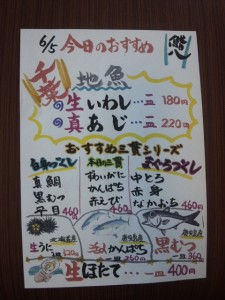 6/5 今日のおすすめ
千葉 地魚
生いわし…一皿 180円
真あじ…一皿 220円
おすすめ三貫シリーズ
白身づくし
真鯛
黒むつ
平目 460
本日の三貫
かんぱち
赤えび 460
まぐろづくし
中とろ
赤身
なかおち 460
生うに
かんぱち
黒むつ
一皿 360
生ほたて…一皿 400円